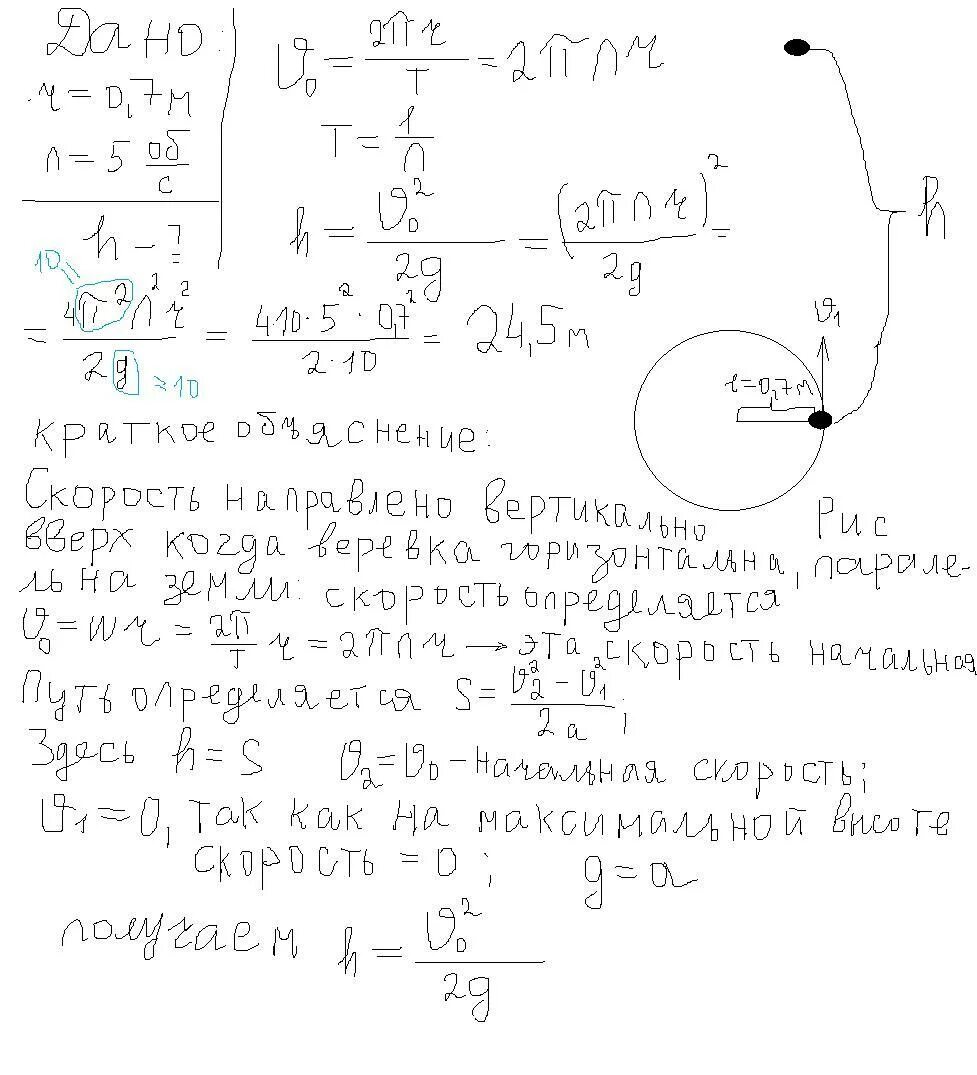 Дано:
r = 0,7 м
n = 5 об/с
h - ?
υ₀ = 2πr/T = 2πnr
T = 1/n
h = υ₀²/2g = (2πnr)²/2g =
10
= 4π²n²r²/2g = 4·10·5²·0,7²/2·10 = 24,5 м
≈10
h
υ₁
r=0,7м
Рис
краткое объяснение:
Скорость направлено вертикально
вверх когда веревка горизонтальна, парале-
льна земли: скорость определяется
υ₀ = wr = 2π/T r = 2πnr → эта скорость начальная
Путь определяется S = υ₂² - υ₁²/2a;
Здесь h = S υ₂ = υ₀ - начальная скорость;
υ₁ = 0, так как на максимальной высоте
скорость = 0; g = a
получаем h = υ₀²/2g